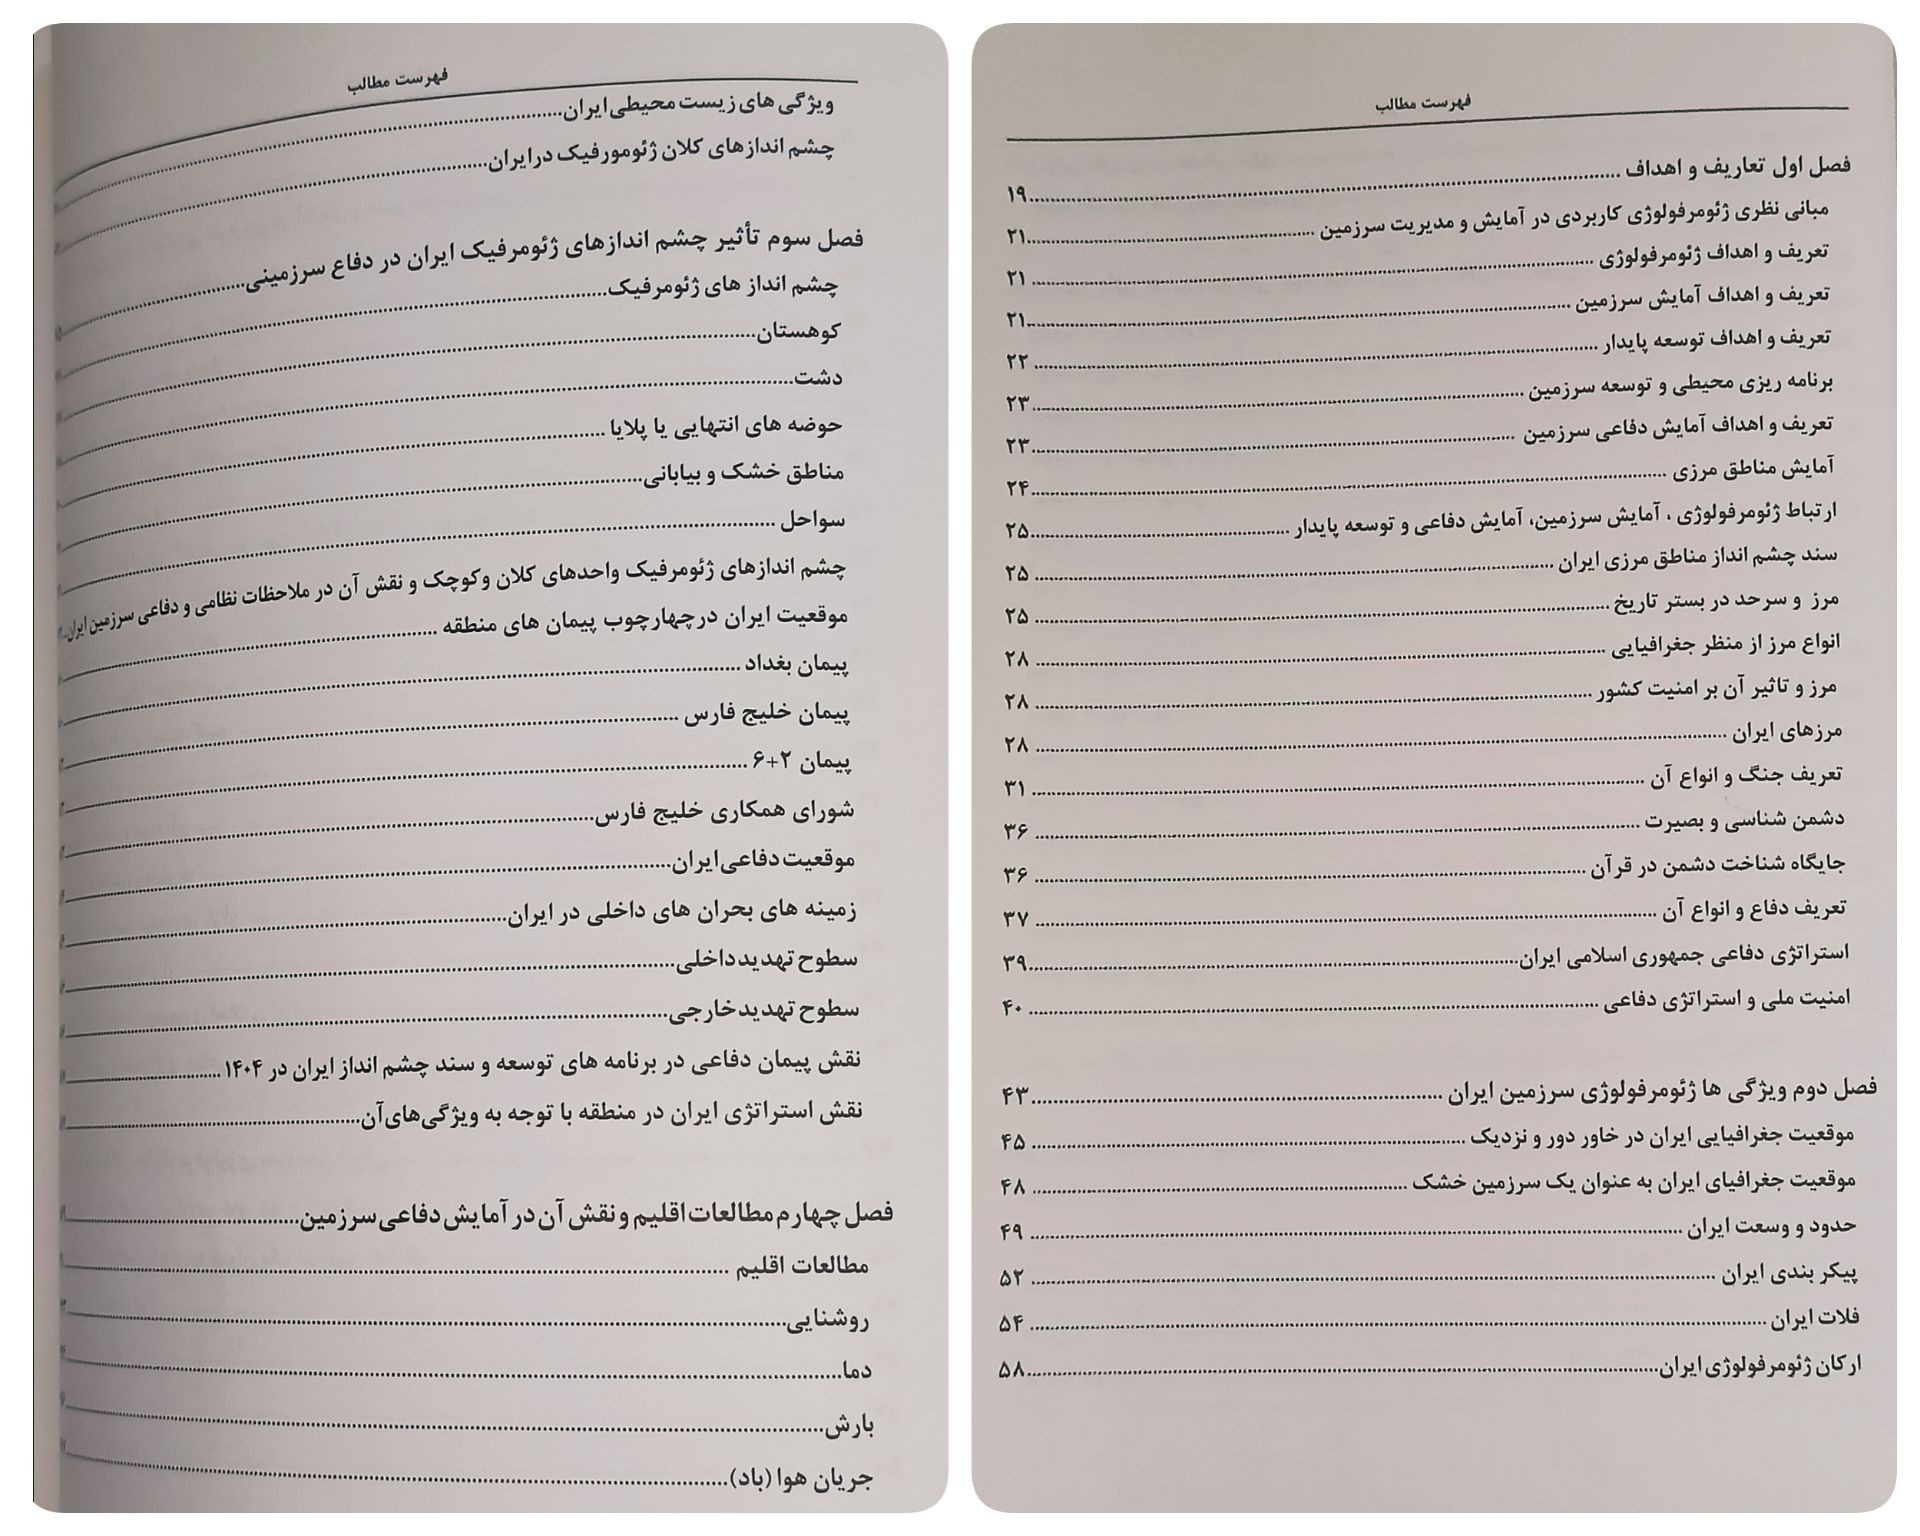 فهرست مطالب
فصل اول تعاریف و اهداف ۱۹
مبانی نظری ژئومرفولوژی کاربردی در آمایش و مدیریت سرزمین ۲۱
تعریف و اهداف ژئومرفولوژی ۲۱
تعریف و اهداف آمایش سرزمین ۲۱
تعریف و اهداف توسعه پایدار ۲۲
برنامه ریزی محیطی و توسعه سرزمین ۲۳
تعریف و اهداف آمایش دفاعی سرزمین ۲۳
آمایش مناطق مرزی ۲۴
ارتباط ژئومرفولوژی ، آمایش سرزمین، آمایش دفاعی و توسعه پایدار ۲۵
سند چشم انداز مناطق مرزی ایران ۲۵
مرز و سرحد در بستر تاریخ ۲۵
انواع مرز از منظر جغرافیایی ۲۸
مرز و تاثیر آن بر امنیت کشور ۲۸
مرزهای ایران ۲۸
تعریف جنگ و انواع آن ۳۱
دشمن شناسی و بصیرت ۳۶
جایگاه شناخت دشمن در قرآن ۳۶
تعریف دفاع و انواع آن ۳۷
استراتژی دفاعی جمهوری اسلامی ایران ۳۹
امنیت ملی و استراتژی دفاعی ۴۰
فصل دوم ویژگی ها ژئومرفولوژی سرزمین ایران ۴۳
موقعیت جغرافیایی ایران در خاور دور و نزدیک ۴۵
موقعیت جغرافیای ایران به عنوان یک سرزمین خشک ۴۸
حدود و وسعت ایران ۴۹
پیکر بندی ایران ۵۲
فلات ایران ۵۴
ارکان ژئومرفولوژی ایران ۵۸
فهرست مطالب
ویژگی های زیست محیطی ایران
چشم اندازهای کلان ژئومورفیک در ایران
فصل سوم تأثیر چشم اندازهای ژئومرفیک ایران در دفاع سرزمینی
چشم انداز های ژئومرفیک
کوهستان
دشت
حوضه های انتهایی یا پلایا
مناطق خشک و بیابانی
سواحل
چشم اندازهای ژئومرفیک واحدهای کلان وکوچک و نقش آن در ملاحظات نظامی و دفاعی سرزمین ایران
موقعیت ایران درچهارچوب پیمان های منطقه
پیمان بغداد
پیمان خلیج فارس
پیمان ۲+۶
شورای همکاری خلیج فارس
موقعیت دفاعی ایران
زمینه های بحران های داخلی در ایران
سطوح تهدید داخلی
سطوح تهدید خارجی
نقش پیمان دفاعی در برنامه های توسعه و سند چشم انداز ایران در ۱۴۰۴
نقش استراتژی ایران در منطقه با توجه به ویژگی‌های آن
فصل چهارم مطالعات اقلیم و نقش آن در آمایش دفاعی سرزمین
مطالعات اقلیم
روشنایی
دما
بارش
جریان هوا (باد)